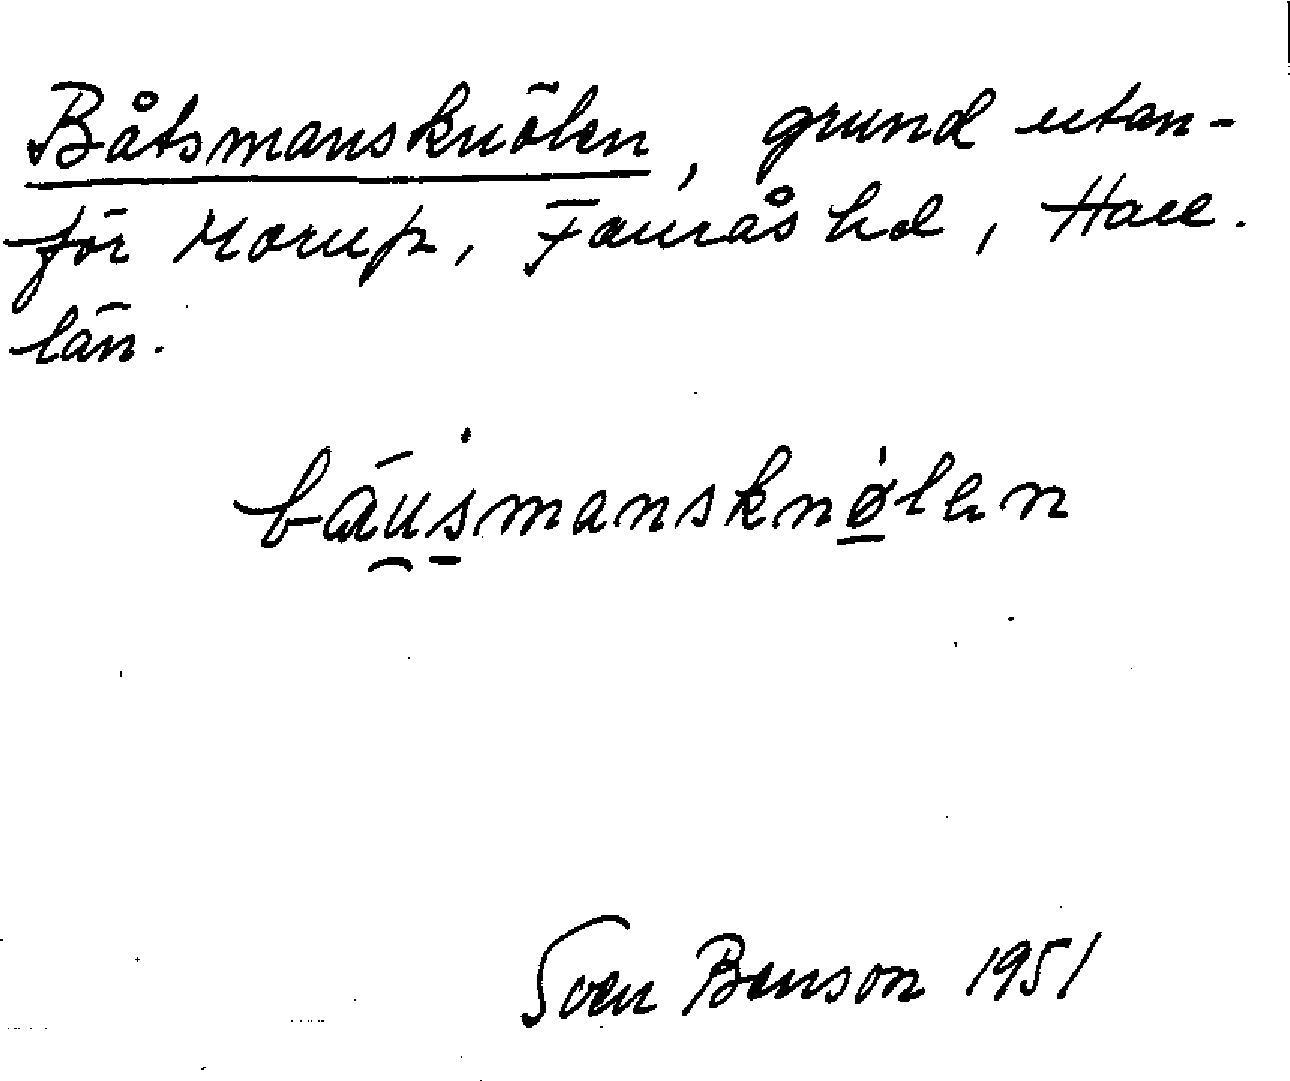 Båtsmansknölen, grund utan-
för Morup, Faurås hd, Hall.
län.
bausmansknølen
Sven Benson 1951